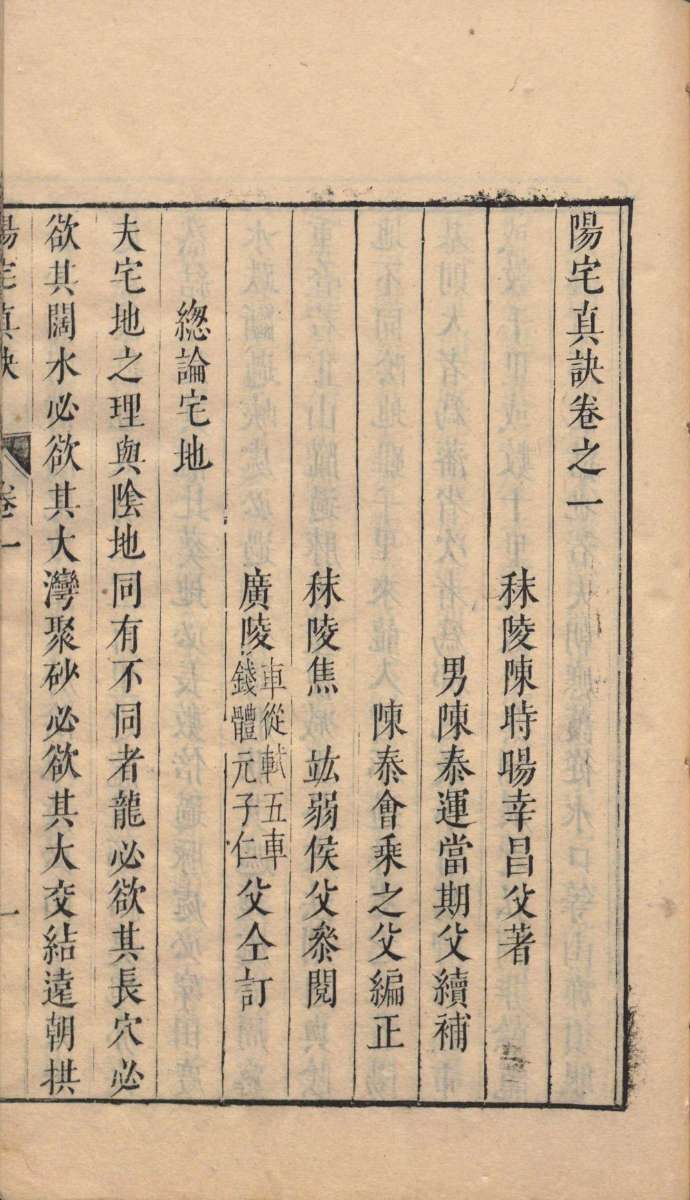 陽宅真訣卷之一
秣陵陳時暘幸昌父著
男陳泰運當期父續補
陳泰會乘之父編正
秣陵焦竑弱侯父叅閱
廣陵車從軾五車錢體元子仁父仝訂
緫論宅地
夫宅地之理與陰地同有不同者龍必欲其長穴必
欲其闊水必欲其大灣聚砂必欲其大交結遠朝拱
陽宅真訣
卷一
一